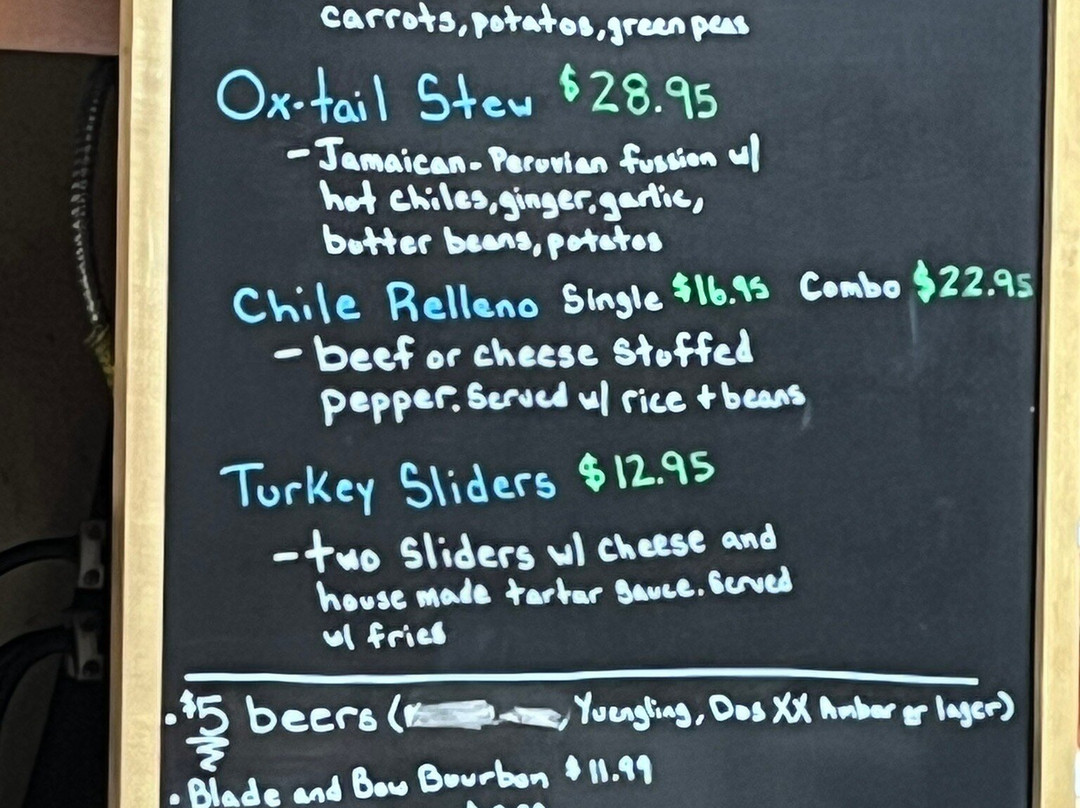 carrots, potatos, green peas
Ox-tail Stew $28.95
- Jamaican-Peruvian fussion w/
hot chiles, ginger, garlic,
butter beans, potatos
Chile Relleno Single $16.95 Combo $22.95
- beef or cheese stuffed
pepper. Served w/ rice + beans
Turkey Sliders $12.95
- two sliders w/ cheese and
house made tartar sauce. Served
w/ fries
• $5 beers ( , Yuengling, Dos XX Amber or lager)
• Blade and Bow Bourbon $11.99